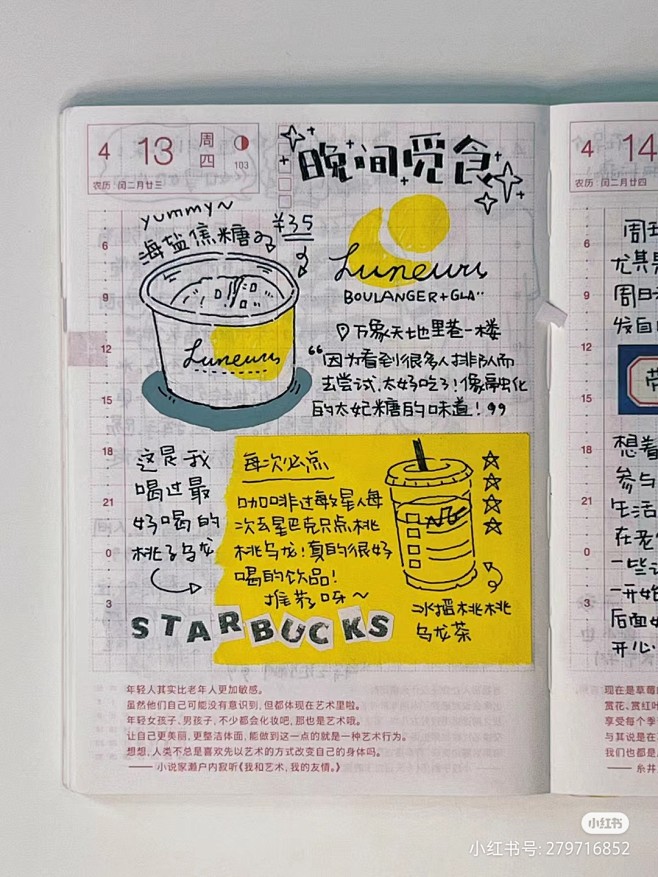 4 13 周四
103
农历:闰二月廿三
晚间觅食
yummy~
海盐焦糖
¥35
Luneurs
Luneurs
BOULANGER+GLA··
万象天地里巷一楼
“因为看到很多人排队而
去尝试,太好吃了!像融化
的太妃糖的味道!”
6
9
12
15
18
21
0
3
这是我
喝过最
好喝的
桃子乌龙
每次必点
咖啡过敏星人每
次去星巴克只点桃
桃乌龙!真的很好
喝的饮品!
推荐呀~
冰摇桃桃
乌龙茶
STARBUCKS
年轻人其实比老年人更加敏感。
虽然他们自己可能没有意识到,但都体现在艺术里啦。
年轻女孩子、男孩子,不少都会化妆吧,那也是艺术哦。
让自己更美丽,更整洁体面,能做到这一点的就是一种艺术行为。
想想,人类不总是喜欢先以艺术的方式改变自己的身体吗。
—— 小说家濑户内寂听《我和艺术,我的友情。》
4 14
农历:闰二月廿四
6
9
12
15
18
21
0
3
尤其
周日
发自
想着
参与
生活
在老
一些
一开始
后面
开心
现在是草莓
赏花、赏红叶
享受每个季
与其说是在
我们也都是
—— 糸井
小红书
小红书号: 279716852